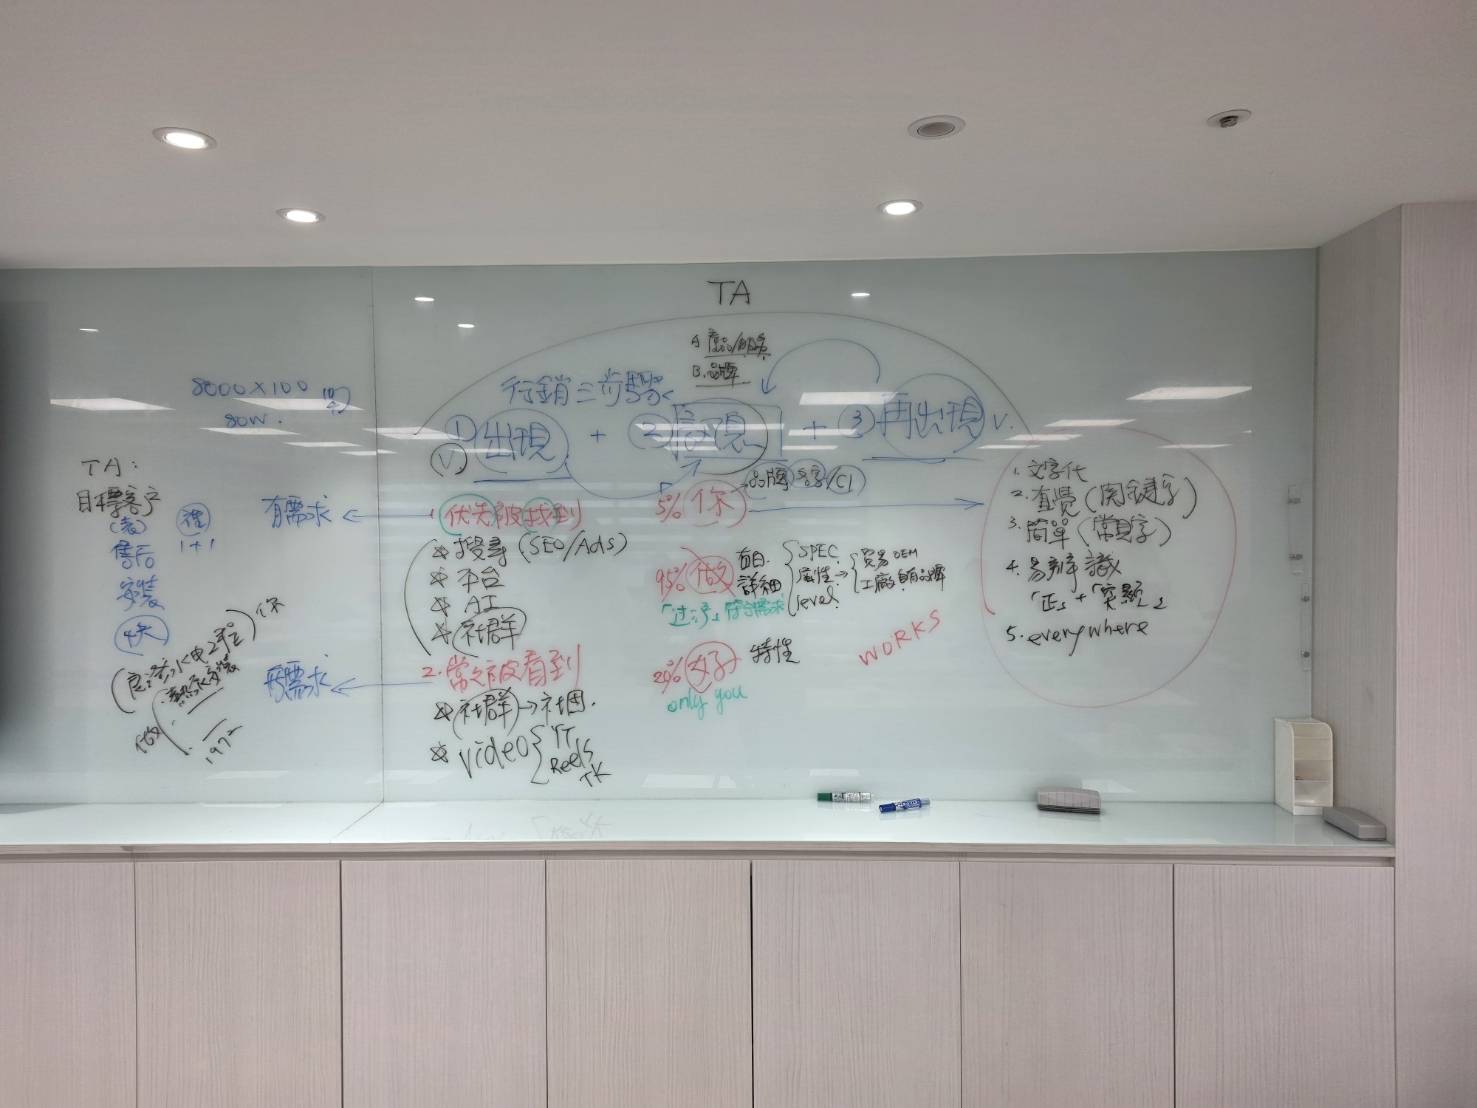 TA
A 產品/服務
B. 品牌
行銷三步驟
① 出現 + ② + ③ 再出現 V.
(V)
品牌名字/CI
8000×100
80W.
TA:
目標客戶
1+1
售后
安裝
有需求
1. 優先被找到
* 搜尋 (SEO/Ads)
* 平台
* AI
* 社群
沒需求
2. 常常被看到
* 社群→社團.
* Video { YT
Reels
TK
5% 你
95% 做
詳細
SPEC
屬性
level
貿易 OEM
工廠 自有品牌
符合需求
20% 好 特性
only you
WORKS
1. 文字化
2. 直覺 (関鍵字)
3. 簡單 (常見字)
4. 易辨識
5. everywhere
熱水安裝
做
你
1972